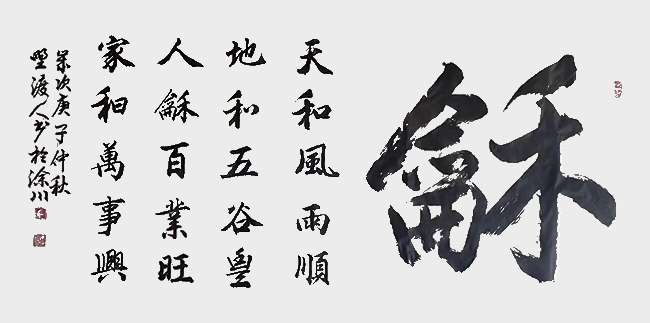 龢
天和風雨順
地和五谷豐
人龢百業旺
家和萬事興
歲次庚子仲秋
渡人书於川